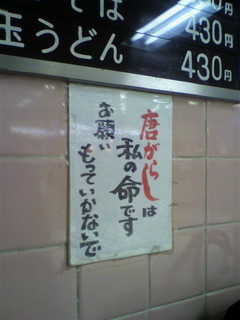 そば 430円
玉うどん 430円
430円
唐がらしは
私の命です
お願い
もっていかないで